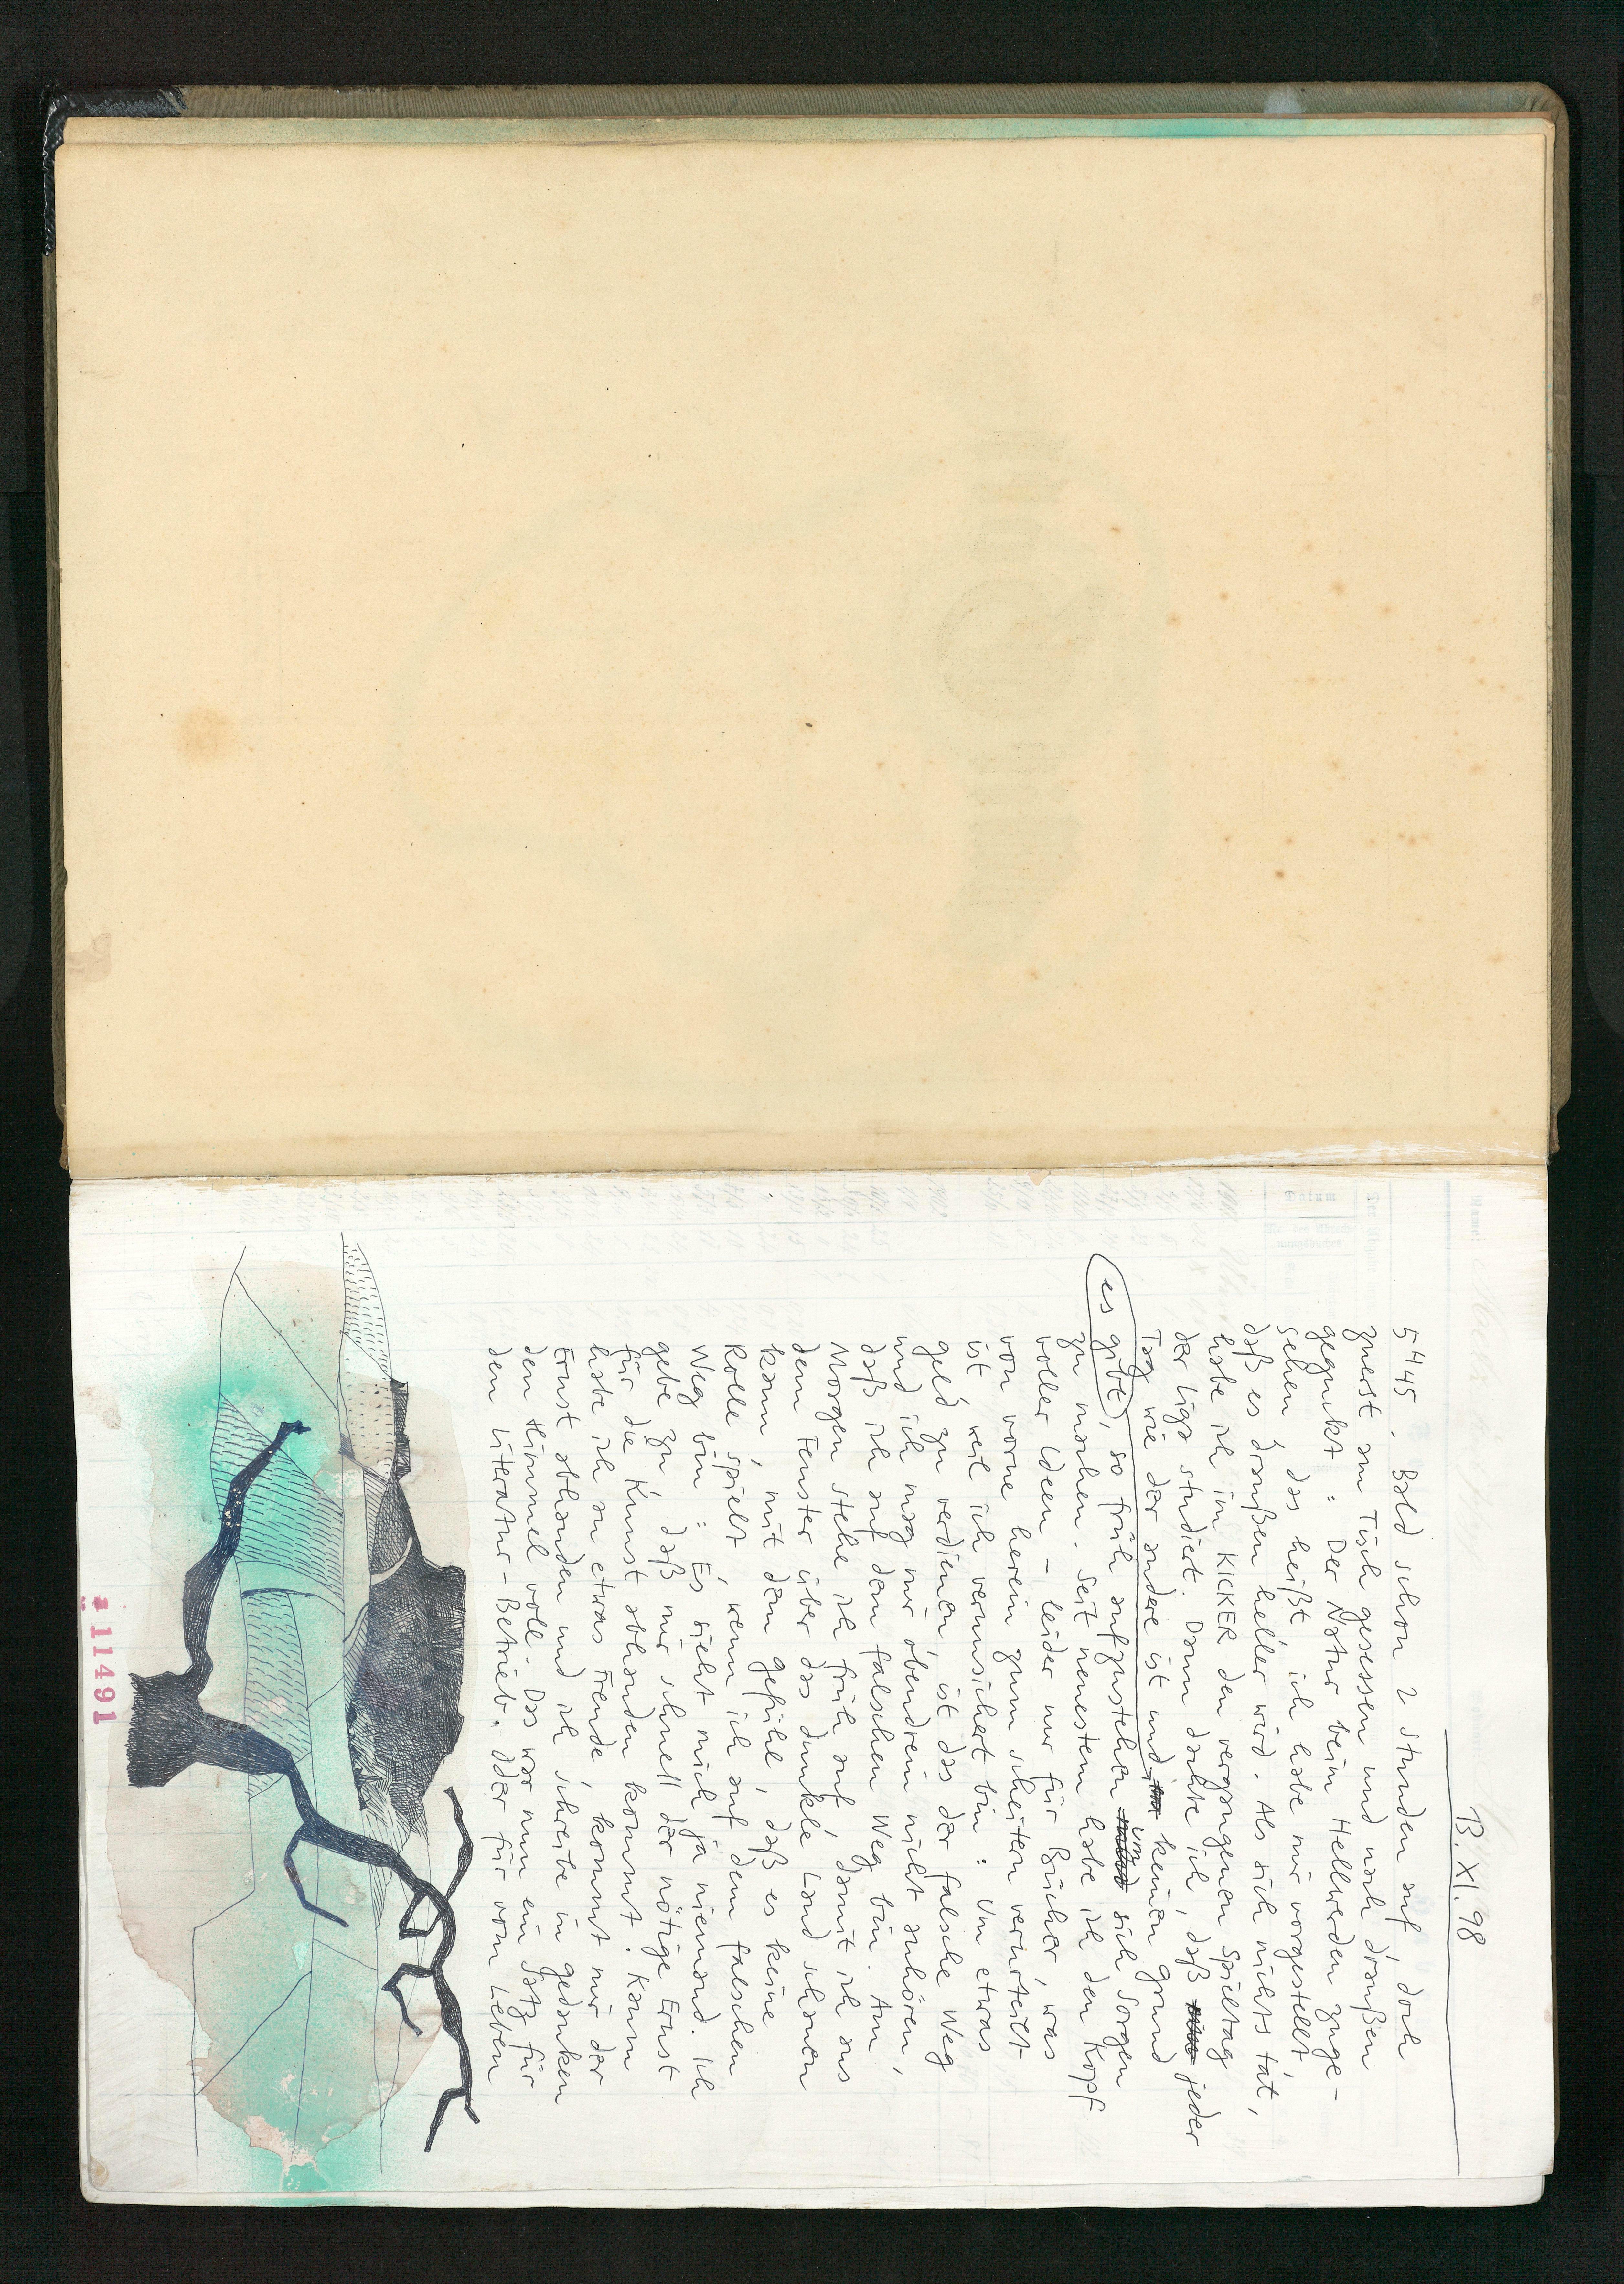 13. XI. 98
5⁴⁴45. Bald schon 2 Stunden auf, doch
zuerst am Tisch gesessen und nach draußen
geguckt: Der Natur beim Hellwerden zuge-
sehen, das heißt, ich habe mir vorgestellt,
daß es draußen heller wird. Als sich nichts tat,
habe ich im KICKER den vergangenen Spieltag
der Liga studiert. Dann dachte ich, daß jeder
Tag wie der andere ist und keinen Grund
es gibt, so früh aufzustehen um sich Sorgen
zu machen. Seit neuestem habe ich den Kopf
voller Ideen - leider nur für Bücher, was
von vorne herein zum scheitern verurteilt
ist, weil ich verunsichert bin: Um etwas
Geld zu verdienen, ist das der falsche Weg
und ich mag mir obendrein nicht anhören,
daß ich auf dem falschen Weg bin. Am
Morgen stehe ich früh auf, damit ich aus
dem Fenster über das dunkle Land schauen
kann, mit dem Gefühl, daß es keine
Rolle spielt, wenn ich auf dem falschen
Weg bin: Es sieht mich ja niemand. Ich
gebe zu, daß mir schnell der nötige Ernst
für die Kunst abhanden kommt. Kaum
habe ich an etwas Freude, kommt mir der
Ernst abhanden und ich schreibe in Gedanken
den Himmel voll. Das war nun ein Satz für
den Literatur-Betrieb. Oder für vom Leben
11491